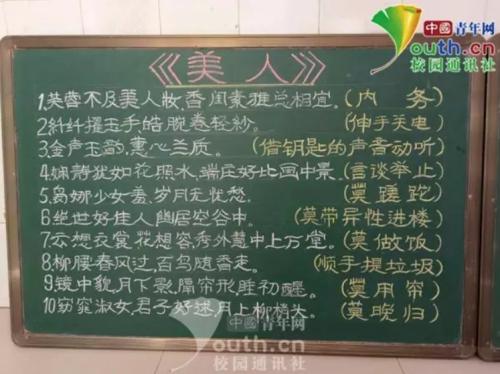 中国青年网
Youth.cn
校园通讯社
《美人》
1.芙蓉不及美人妆,香闺素雅总相宜。(内务)
2.纤纤擢玉手,皓腕卷轻纱。(伸手关电)
3.金声玉韵,蕙心兰质。(借钥匙的声音动听)
4.娴静犹如花照水,端庄好比画中景。(言谈举止)
5.袅娜少女羞,岁月无忧愁。(莫蹉跎)
6.绝世好佳人,幽居空谷中。(莫带异性进楼)
7.云想衣裳花想容,秀外慧中上厅堂。(莫做饭)
8.柳腰春风过,百鸟随香走。(顺手提垃圾)
9.镜中貌,月下影,隔帘形,胜初醒。(莫用帘)
10.窈窕淑女,君子好逑,月上柳梢头。(莫晚归)
中国青年网
Youth.cn
校园通讯社